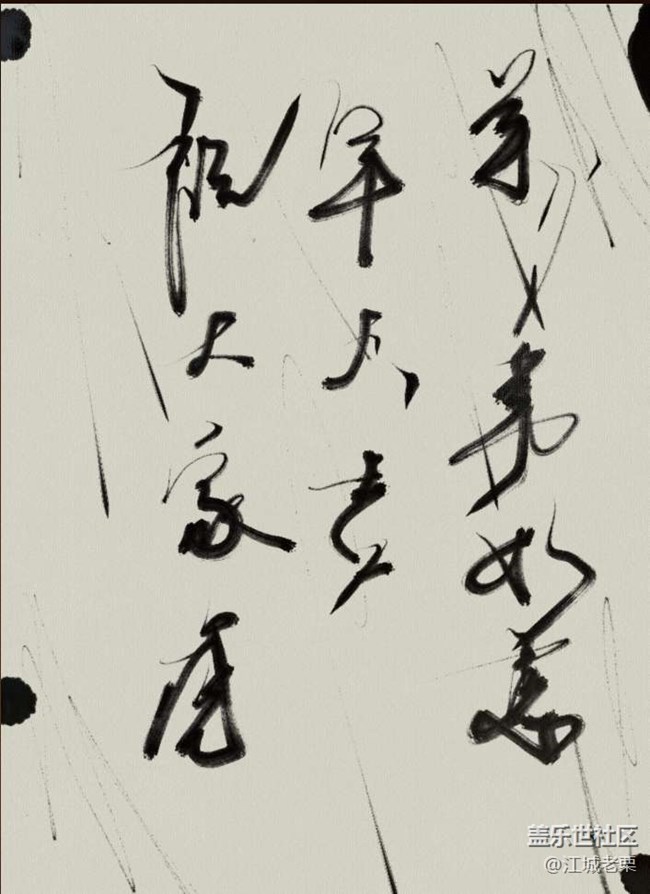 祝大家虎
年大
萬事如意
盖乐世社区
@江城老栗